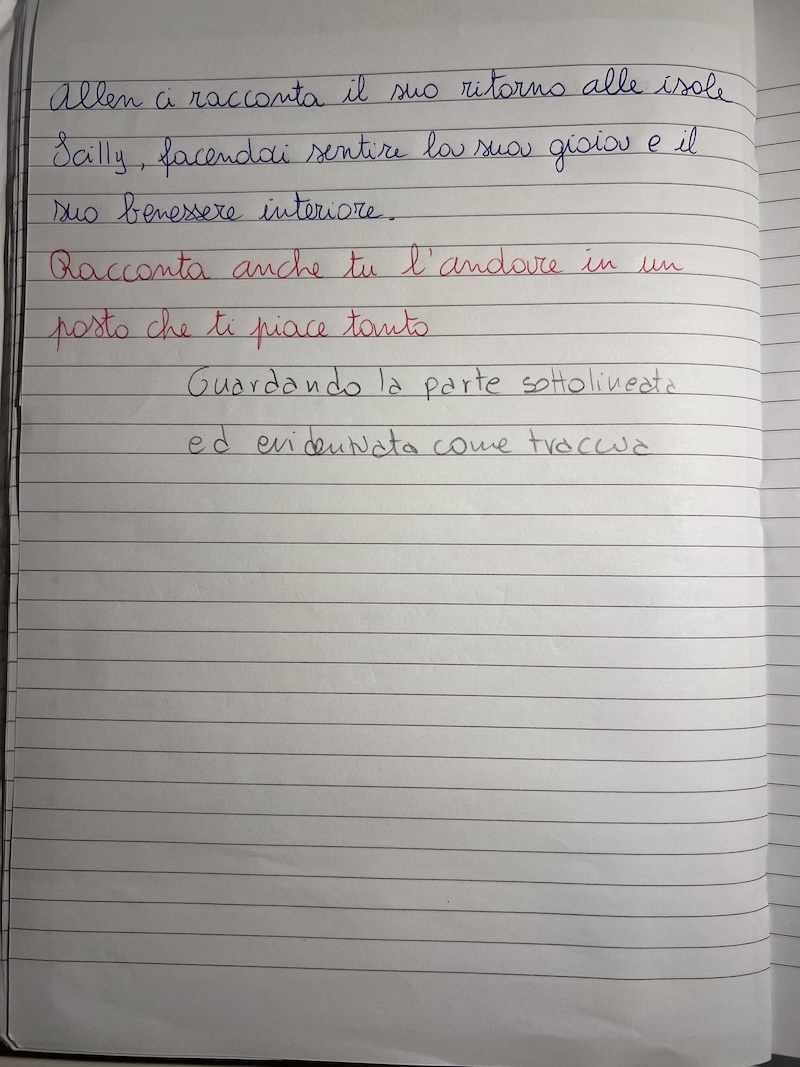 Allen ci racconta il suo ritorno alle isole
Scilly, facendoci sentire la sua gioia e il
suo benessere interiore.
Racconta anche tu l'andare in un
posto che ti piace tanto
Guardando la parte sottolineata
ed evidenziata come traccia